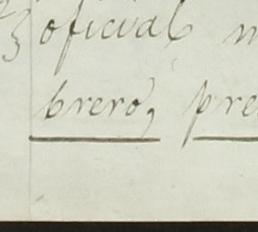 oficial
brero, pre